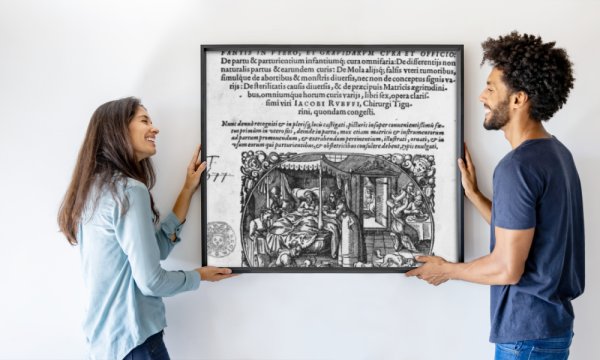 FANTIS IN VTERO, ET GRAVIDARVM CVRA ET OFFICIO:
De partu & parturientium infantiumq; cura omnifaria: De differentijs non
naturalis partus & earundem curis: De Mola alijsq; falsis vteri tumoribus,
simulque de abortibus & monstris diuersis, nec non de conceptus signis va-
rijs: De sterilitatis causis diuersis, & de præcipuis Matricis ægritudini-
bus, omniumque horum curis varijs, libri sex, opera claris-
simi viri IACOBI RVEFFI, Chirurgi Tigu-
rini, quondam congesti.
Nunc denuò recogniti & in plerisq; locis castigati, picturis insuper conuenientissimis fœ-
tus primùm in vtero siti, deinde in partu, mox etiam matricis & instrumentorum
ad partum promouendum, & extrahendum pertinentium, illustrati, ornati, & in
vsum eorum qui parturientibus, & obstetricibus consulere debent, typis euulgati,